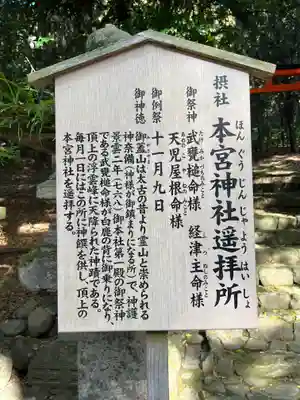 摂社
本宮神社遥拝所
ほんぐうじんじゃようはいしょ
御祭神
武甕槌命様
たけみかづちのみこと
経津主命様
ふつぬしのみこと
天児屋根命様
御例祭
十一月九日
御神徳
御蓋山は太古の昔より霊山と崇められる
神奈備(神様が御鎮まりになる所)で、神護
景雲二年(七六八)御本社第一殿の御祭神
である武甕槌命様が白鹿の背に御乗りになり、
頂上の浮雲峰に天降られた神蹟である。
毎月一日にはこの所に神饌を供し、頂上の
本宮神社を遥拝する。